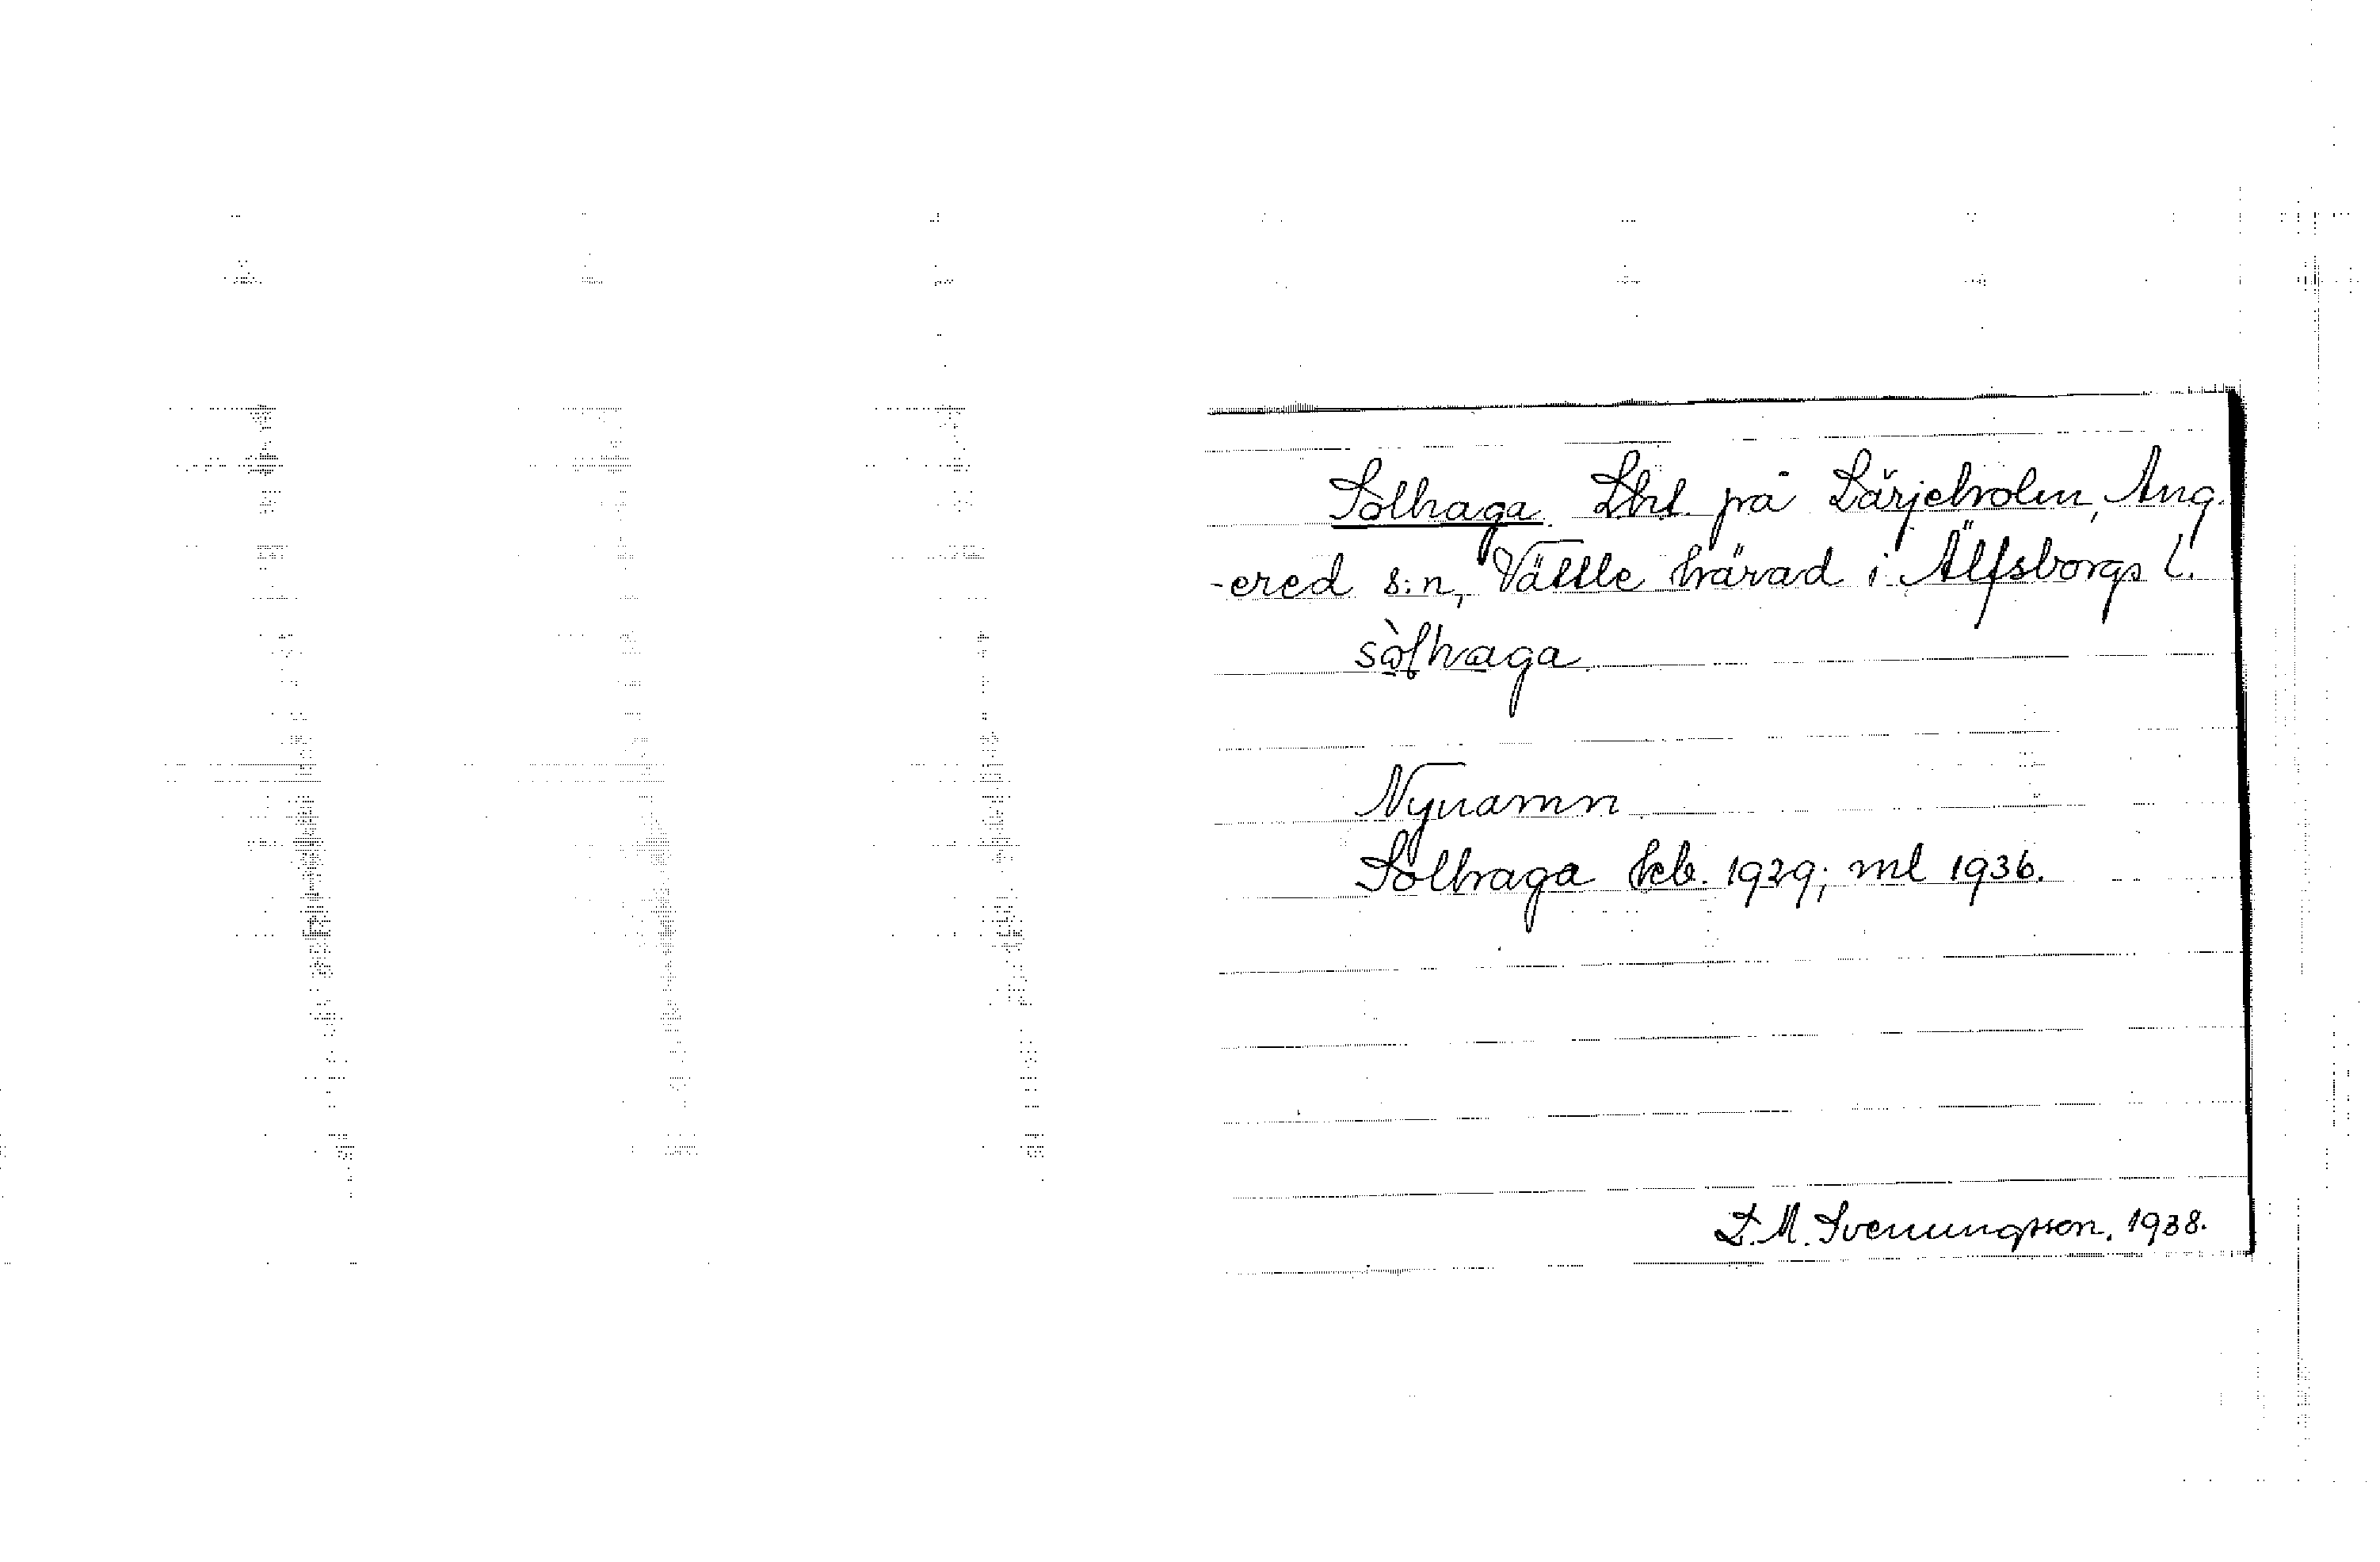 Solhaga. Lht. på Lärjeholm, Ang-
-ered s:n, Vättle härad i Älfsborgs l.
sòlhaga
Nynamn
Solhaga kcb. 1929; ml 1936.
D. M. Svenungsson. 1938.